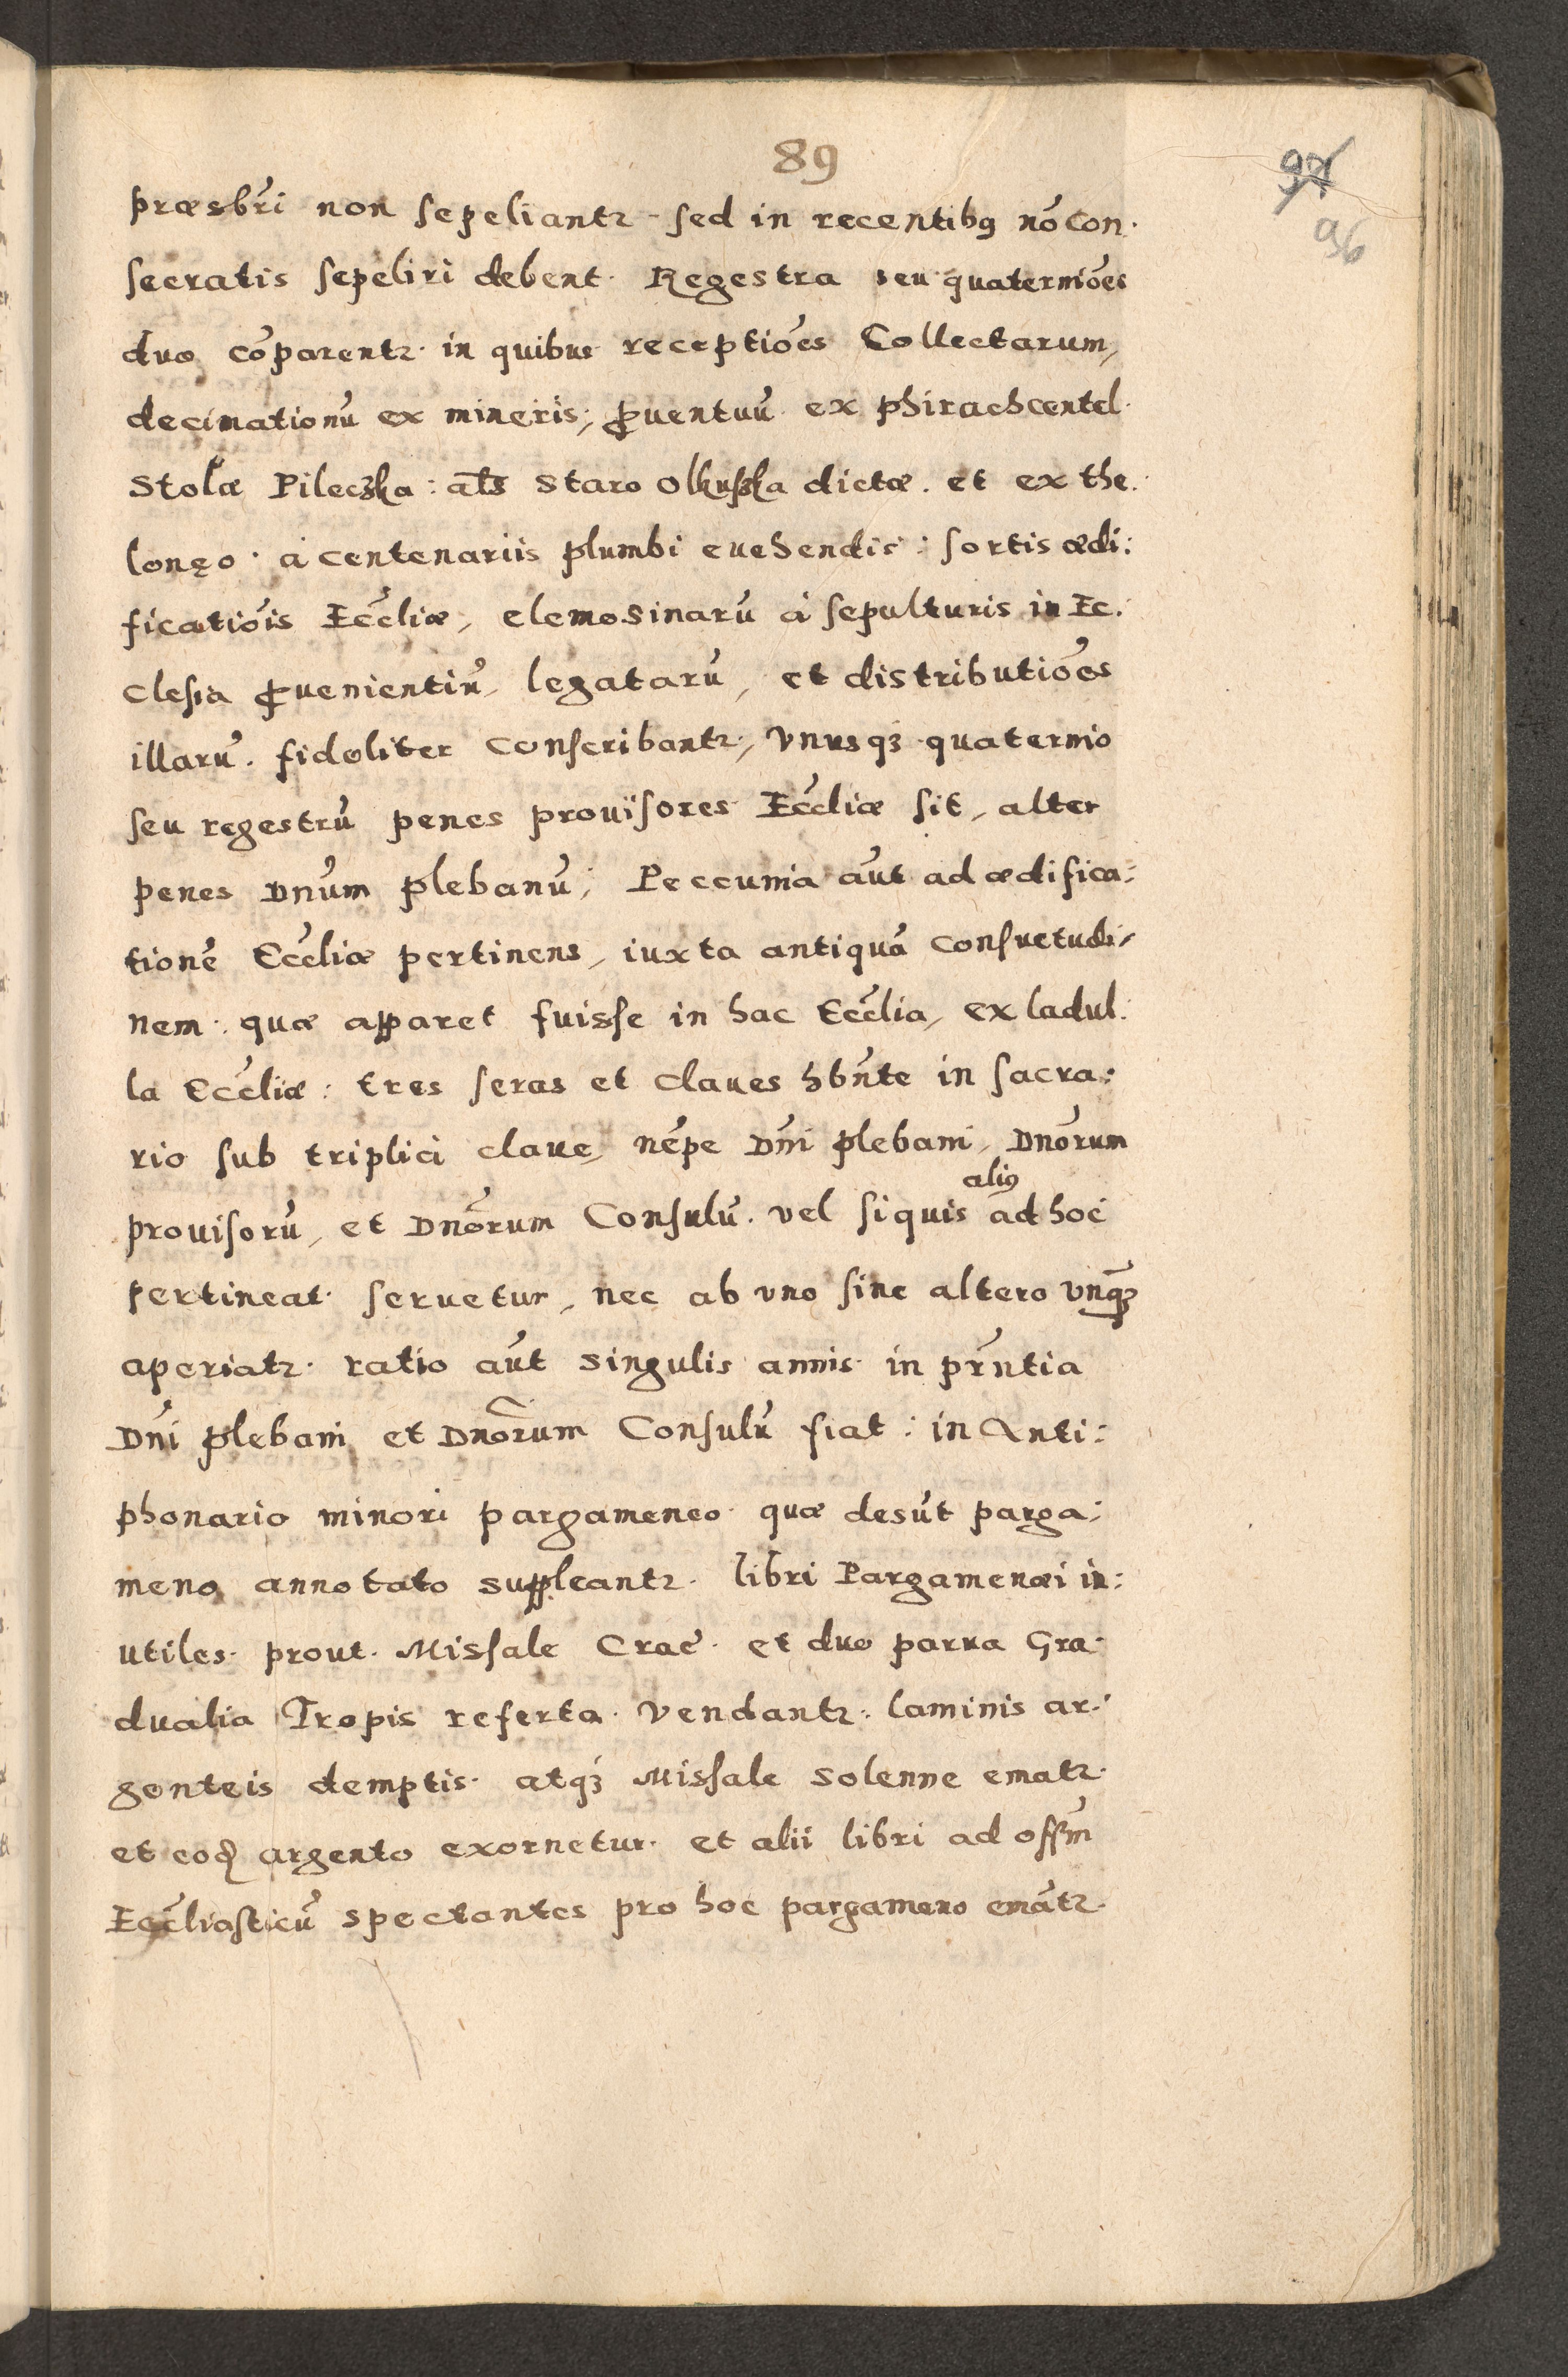 89
97
96
præsbr̃i non sepeliantꝛ sed in recentibꝯ nõ con·
secratis sepeliri debent· Regestra seu quaternio͂es
duo co͂parentꝛ· in quibus receptio͂es Collectarum,
decimationu͂ ex mineris, ꝓuentuu͂ ex phirachcentel·
Stolæ Pileczka: al̃s Staro Olkuszka dictæ. et ex the·
lonęo· à centenariis plumbi euehendis: sortis ædi:
ficatio͂is Ecc͂liæ, elemosinaru͂ à sepulturis in Ec·
clesia ꝓuenientiu͂, legataru͂, et distributio͂es
illaru͂. fideliter conscribantꝛ, vnusqꝫ quaternio
seu regestru͂ penes prouisores Ecc͂liæ sit, alter
penes Dnu͂m plebanu͂; Peccunia au͂t ad ædifica:
tione͂ Ecc͂liæ pertinens, iuxta antiqua͂ consuetudi-
nem: quæ apparet fuisse in hac Ecc͂lia, ex ladul·
la Ecc͂liæ: tres seras et claues hb͂nte in sacra:
rio sub triplici claue, ne͂pe Dn͂i plebani, Dno͂rum
prouisoru͂, et Dno͂rum Consulu͂. vel siquis aliꝯ ad hoc
pertineat seruetur, nec ab vno sine altero vnqꝫ
aperiatꝛ· ratio au͂t singulis annis in pr͂ntia
Dn͂i plebani et Dno͂rum Consulu͂ fiat: in Anti:
phonario minori pargameneo quæ desu͂t parga:
meno annotato suppleantꝛ. libri Pargamenæi in:
utiles· prout· Missale Crac͂· et duo parua Gra·
dualia Tropis referta· vendantꝛ: laminis ar·
genteis demptis· atqꝫ Missale solenne ematꝛ·
et eod̃ argento exornetur· et alii libri ad off͂m
Ecc͂liasticu͂ spectantes pro hoc pargameno ema͂tꝛ·